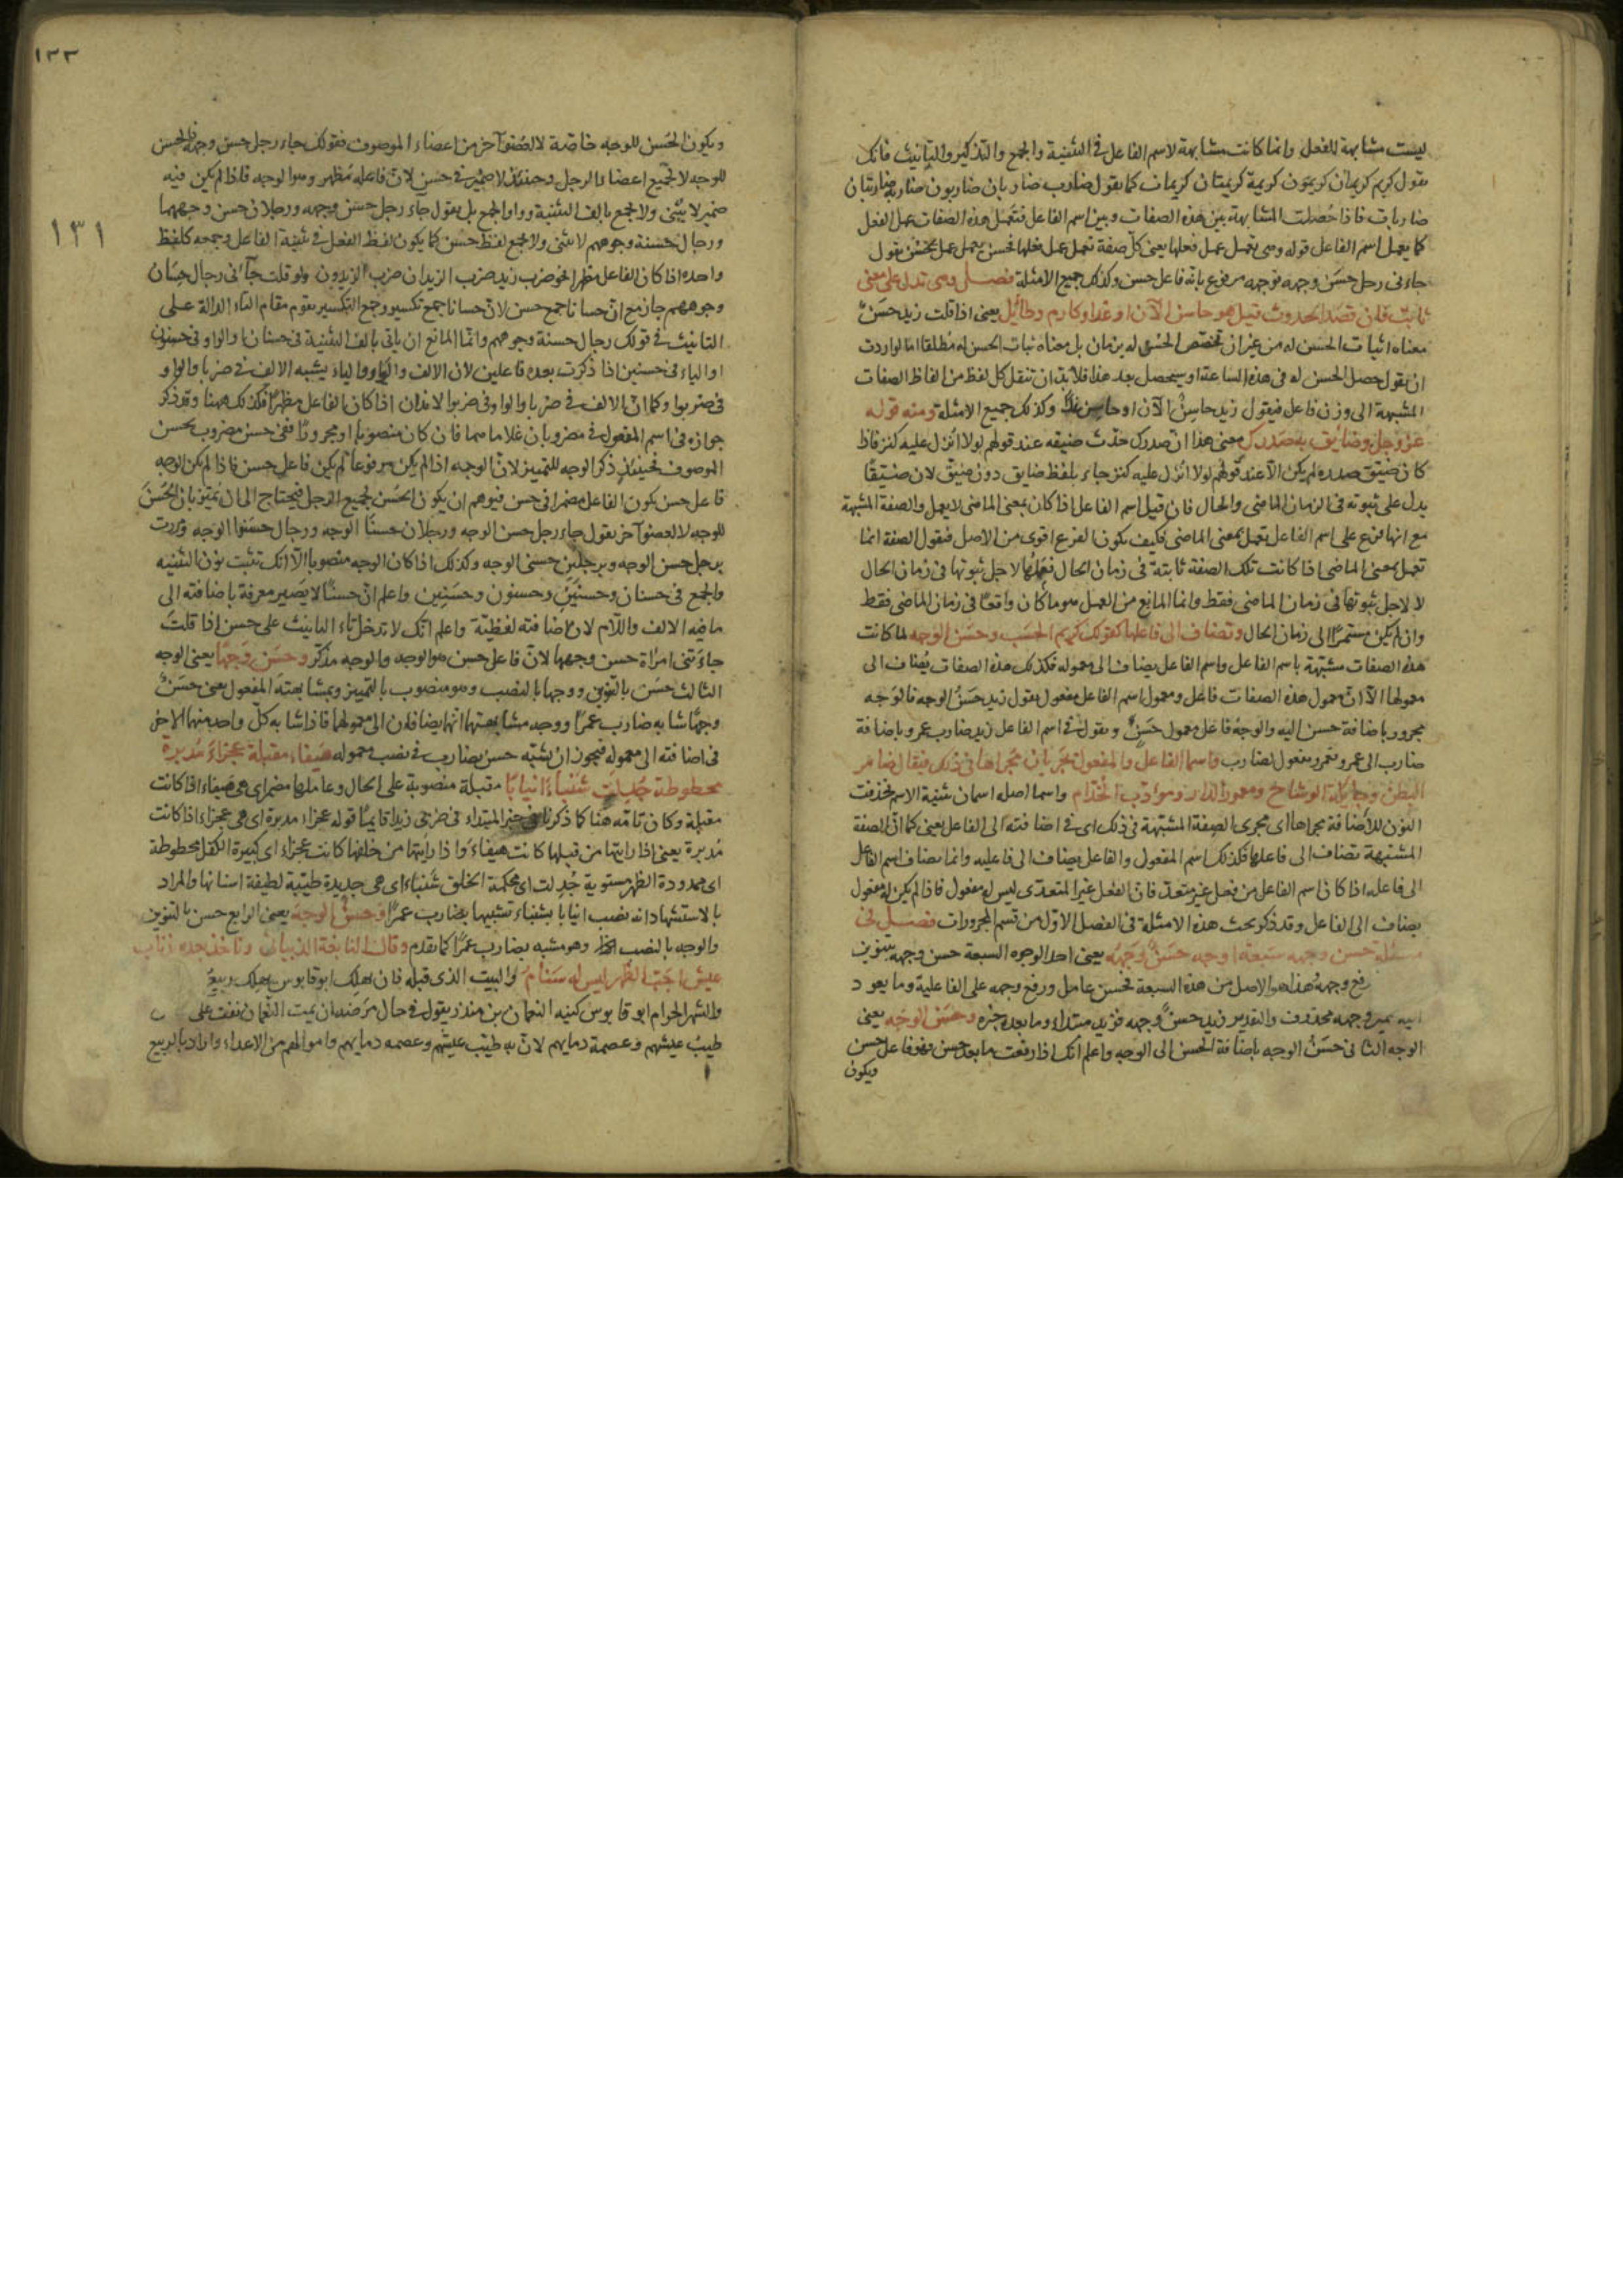 ليست مشابهة للفعل وانما كانت مشابهة لاسم الفاعل في التثنية والجمع والتذكير والتانيث فانك
تقول كريم كريمان كريمون كريمة كريمتان كريمات كما تقول ضارب ضاربان ضاربون ضاربة ضاربتان
ضاربات فاذا حصلت المشابهة بين هذه الصفات وبين اسم الفاعل فتعمل هذه الصفات عمل الفعل
كما يعمل اسم الفاعل قوله وهي تعمل عمل فعلها يعني كل صفة تعمل عمل فعلها فحسن يعمل عمل يحسن تقول
جاءني رجل حسن وجهه فوجهه مرفوع بانه فاعل حسن وكذلك جميع الامثلة فصل وهي تدل على معنى
ثابت فان قصد الحدوث قيل هو حاسن الآن او غدا وكارم وطائل يعني اذا قلت زيد حسن
معناه اثبات الحسن له من غير ان تخصص الحسن له بزمان بل معناه ثبات الحسن له مطلقا اما لو اردت
ان تقول حصل الحسن له في هذه الساعة او سيحصل بعد هذا فلا بد ان تنقل كل لفظ من الفاظ الصفات
المشبهة الى وزن فاعل فيقول زيد حاسن الآن او حاسن غدا وكذلك جميع الامثلة ومنه قوله
عز وجل وضائق به صدرك معنى هذا ان صدرك حدث ضيقه عند قولهم لولا انزل عليه كنز فاذا
كان ضيق صدره لم يكن الا عند قولهم لولا انزل عليه كنز جاء بلفظ ضايق دون ضيق لان ضيقا
يدل على ثبوته في الزمان الماضي والحال فان قيل اسم الفاعل اذا كان بمعنى الماضي لا يعمل والصفة المشبهة
مع انها فرع على اسم الفاعل تعمل بمعنى الماضي فكيف يكون الفرع اقوى من الاصل فنقول الصفة انما
تعمل بمعنى الماضي اذا كانت تلك الصفة ثابتة في زمان الحال فعملها لاجل ثبوتها في زمان الحال
لا لاجل ثبوتها في زمان الماضي فقط وانما المانع من العمل هو ما كان واقعا في زمان الماضي فقط
وان لم يكن مستمرا الى زمان الحال وتضاف الى فاعلها كقولك كريم الحسب وحسن الوجه لما كانت
هذه الصفات مشبهة باسم الفاعل واسم الفاعل يضاف الى معموله فكذلك هذه الصفات يضاف الى
معمولها الا ان معمول هذه الصفات فاعل ومعمول اسم الفاعل مفعول تقول زيد حسن الوجه فالوجه
مجرور باضافة حسن اليه والوجه فاعل ومعمول حسن وتقول في اسم الفاعل زيد ضارب عمرو باضافة
ضارب الى عمرو فعمرو مفعول لضارب واسما الفاعل والمفعول يجريان مجراها في ذلك فيقال ضامر
البطن وجائلة الوشاح ومعمور الدار ومؤدب الخدام واسما اصله اسمان تثنية الاسم فحذفت
النون للاضافة مجراها اي مجرى الصفة المشبهة في ذلك اي في اضافته الى الفاعل يعني كما ان الصفة
المشبهة تضاف الى فاعلها فكذلك اسم المفعول والفاعل يضاف الى فاعليه وانما يضاف اسم الفاعل
الى فاعله اذا كان اسم الفاعل من فعل غير متعد فان الفعل غير المتعدي ليس له مفعول فاذا لم يكن له مفعول
يضاف الى الفاعل وقد ذكر بحث هذه الامثلة في الفصل الاول من قسم المجرورات فصل في
مسئلة حسن وجهه سبعة اوجه حسن وجهه يعني احد الوجوه السبعة حسن وجهه بتنوين
رفع وجهه وهذا هو الاصل من هذه السبعة فحسن عامل ورفع وجهه على الفاعلية وما يعود
اليه محذوف والتقدير زيد حسن وجهه فزيد مبتداء وما بعده خبره وحسن الوجه يعني
الوجه الثاني حسن الوجه باضافة الحسن الى الوجه واعلم انك اذا رفعت ما بعد حسن فهو فاعل حسن
ويكون
١٣٣
١٣١
ويكون الحسن للوجه خاصة لا لعضو آخر من اعضاء الموصوف فقولك جاء رجل حسن وجهه فالحسن
للوجه لا لجميع اعضاء الرجل وحينئذ لا ضمير في حسن لان فاعله مظهر وهو الوجه فاذا لم يكن فيه
ضمير لا يثنى ولا يجمع بالف التثنية وواو الجمع بل تقول جاء رجل حسن وجهه ورجلان حسن وجههما
ورجال حسنة وجوههم لا يثنى ولا يجمع لفظ حسن كما يكون لفظ الفعل في تثنية الفاعل وجمعه كلفظ
واحده اذا كان الفاعل مظهرا نحو ضرب زيد ضرب الزيدان ضرب الزيدون ولو قلت جاءني رجال حسان
وجوههم جاز مع ان حسانا جمع حسن لان حسانا جمع تكسير وجمع التكسير يقوم مقام التاء الدالة على
التانيث في قولك رجال حسنة وجوههم وانما المانع ان ياتي بالف التثنية في حسنان او الواو في حسنون
او الياء في حسنين اذا ذكرت بعده فاعلين لان الالف والواو والياء يشبه الالف في ضربا والواو
في ضربوا وكما ان الالف في ضربا والواو في ضربوا لا يذكران اذا كان الفاعل مظهرا فكذلك ههنا وقد ذكر
جوازه في اسم المفعول في مضروبان غلاماهما فان كان منصوبا او مجرورا ففي حسن مضروب بحسن
الموصوف فحينئذ ذكر الوجه للتمييز لان الوجه اذا لم يكن مرفوعا لم يكن فاعل حسن فاذا لم يكن الوجه
فاعل حسن يكون الفاعل مضمرا في حسن فيوهم ان يكون الحسن لجميع الرجل فيحتاج الى ان يميز بان الحسن
للوجه لا لعضو آخر تقول جاء رجل حسن الوجه ورجلان حسنا الوجه ورجال حسنوا الوجه ومررت
برجل حسن الوجه وبرجلين حسني الوجه وكذلك اذا كان الوجه منصوبا الا انك تثبت نون التثنية
والجمع في حسنان وحسنين وحسنون وحسنين واعلم ان حسنا لا يصير معرفة باضافته الى
ما فيه الالف واللام لان اضافته لفظية واعلم انك لا تدخل تاء التانيث على حسن اذا قلت
جاءتني امراة حسن وجهها لان فاعل حسن هو الوجه والوجه مذكر وحسن وجها يعني الوجه
الثالث حسن بالتنوين ووجها بالنصب وهو منصوب بالتمييز وبمشابهته المفعول يعني حسن
وجها شابه ضارب عمرا ووجه مشابهتها انهما يضافان الى معمولها فاذا شابه كل واحد منهما الاخر
في اضافته الى معموله فيجوز ان يشبه حسن بضارب في نصب معموله هيفاء مقبلة عجزاء مدبرة
محطوطة جدلت شنباء انيابا مقبلة منصوبة على الحال وعاملها مضمر اي هي هيفاء اذا كانت
مقبلة وكان تامة هنا كما ذكرنا في خبر المبتداء في ضربي زيدا قايما قوله عجزاء مدبرة اي هي عجزاء اذا كانت
مدبرة يعني اذا رايتها من قبلها كانت هيفاء واذا رايتها من خلفها كانت عجزاء اي كبيرة الكفل محطوطة
اي ممدودة الظهر مستوية جدلت اي محكمة الخلق شنباء اي هي جديدة طيبة لطيفة اسنانها والمراد
بالاستشهاد انه نصب انيابا بشنباء تشبيها بضارب عمرا وحسن الوجه يعني الرابع حسن بالتنوين
والوجه بالنصب وهو مشبه بضارب عمرا كما تقدم وقال النابغة الذبياني وناخذ بعده ذناب
عيش اجب الظهر ليس له سنام والبيت الذي قبله فان يهلك ابو قابوس يهلك ربيع
والشهر الحرام ابو قابوس كنية النعمان بن منذر يقول في حال مرضه ان يمت النعمان
طيب عيشهم وعصمة دمايهم لان به طيب عيشهم وعصمة دمايهم واموالهم من الاعداء واراد بالربيع